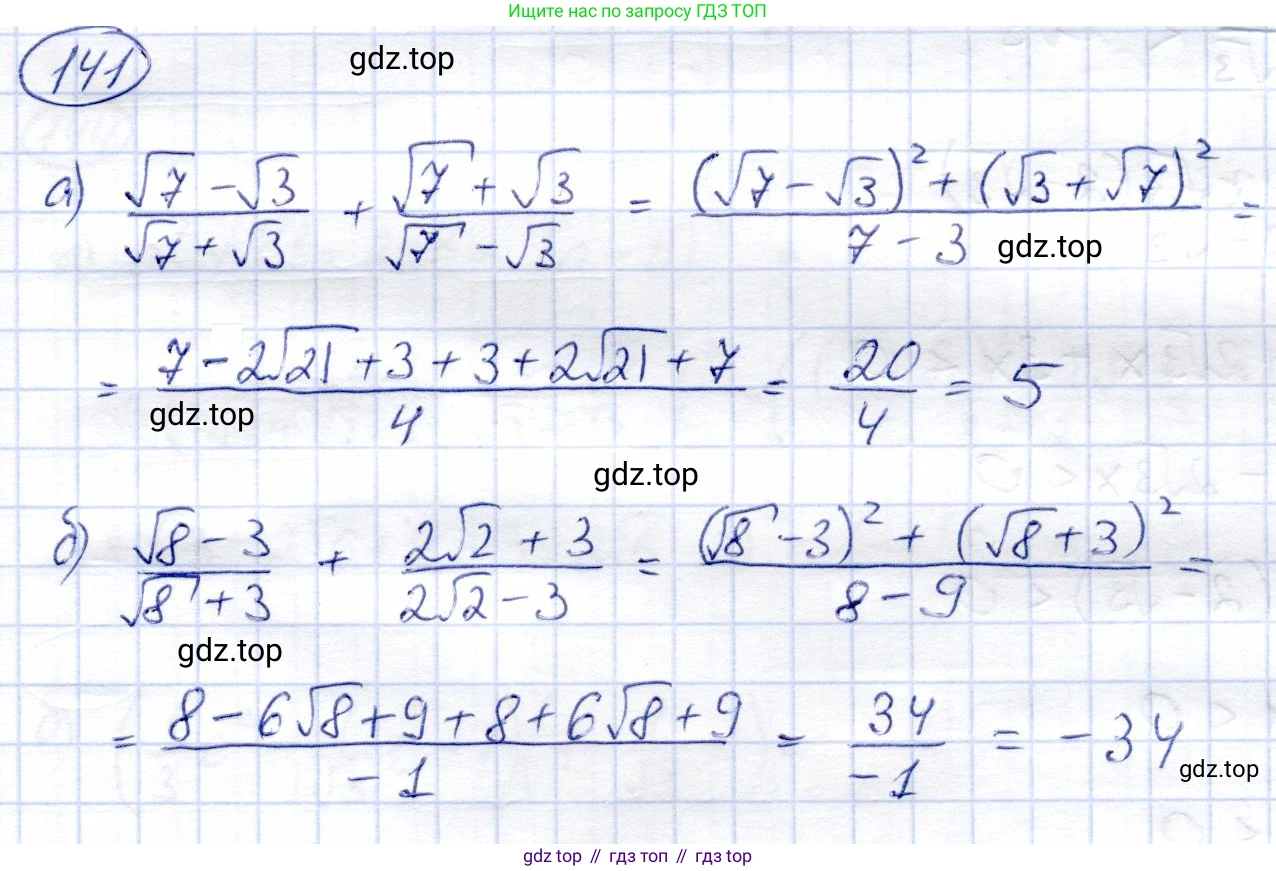 Ищите нас по запросу ГДЗ ТОП
141
gdz.top
а) (√7 - √3)/(√7 + √3) + (√7 + √3)/(√7 - √3) = ((√7 - √3)² + (√3 + √7)²)/(7 - 3) =
gdz.top
= (7 - 2√21 + 3 + 3 + 2√21 + 7)/4 = 20/4 = 5
gdz.top
gdz.top
б) (√8 - 3)/(√8 + 3) + (2√2 + 3)/(2√2 - 3) = ((√8 - 3)² + (√8 + 3)²)/(8 - 9) =
gdz.top
= (8 - 6√8 + 9 + 8 + 6√8 + 9)/(-1) = 34/(-1) = -34
gdz.top
gdz top // гдз топ // гдз top